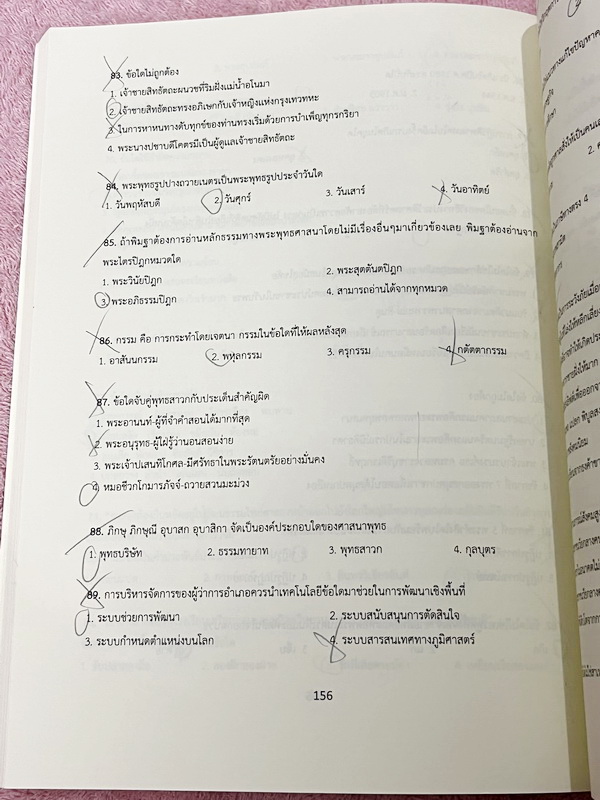 83. ข้อใดไม่ถูกต้อง
1. เจ้าชายสิทธัตถะผนวชที่ริมฝั่งแม่น้ำอโนมา
2. เจ้าชายสิทธัตถะทรงอภิเษกกับเจ้าหญิงแห่งกรุงเทวทหะ
3. ในการหาหนทางดับทุกข์ของท่านทรงเริ่มด้วยการบำเพ็ญทุกรกริยา
4. พระนางปชาบดีโคตรมีเป็นผู้ดูแลเจ้าชายสิทธัตถะ
84. พระพุทธรูปปางถวายเนตรเป็นพระพุทธรูปประจำวันใด
1. วันพฤหัสบดี 2. วันศุกร์ 3. วันเสาร์ 4. วันอาทิตย์
85. ถ้าพิมฐาต้องการอ่านหลักธรรมทางพระพุทธศาสนาโดยไม่มีเรื่องอื่นๆมาเกี่ยวข้องเลย พิมฐาต้องอ่านจาก
พระไตรปิฎกหมวดใด
1. พระวินัยปิฎก 2. พระสุตตันตปิฎก
3. พระอภิธรรมปิฎก 4. สามารถอ่านได้จากทุกหมวด
86. กรรม คือ การกระทำโดยเจตนา กรรมในข้อใดที่ให้ผลหลังสุด
1. อาสันนกรรม 2. พหุลกรรม 3. ครุกรรม 4. กตัตตากรรม
87. ข้อใดจับคู่พุทธสาวกกับประเด็นสำคัญผิด
1. พระอานนท์-ผู้ที่จำคำสอนได้มากที่สุด
2. พระอนุรุทธ-ผู้ใฝ่รู้ว่านอนสอนง่าย
3. พระเจ้าปเสนทิโกศล-มีศรัทธาในพระรัตนตรัยอย่างมั่นคง
4. หมอชีวกโกมารภัจจ์-ถวายสวนมะม่วง
88. ภิกษุ ภิกษุณี อุบาสก อุบาสิกา จัดเป็นองค์ประกอบใดของศาสนาพุทธ
1. พุทธบริษัท 2. ธรรมทายาท 3. พุทธสาวก 4. กุลบุตร
89. การบริหารจัดการของผู้ว่าการอำเภอควรนำเทคโนโลยีข้อใดมาช่วยในการพัฒนาเชิงพื้นที่
1. ระบบช่วยการพัฒนา 2. ระบบสนับสนุนการตัดสินใจ
3. ระบบกำหนดตำแหน่งบนโลก 4. ระบบสารสนเทศทางภูมิศาสตร์
156